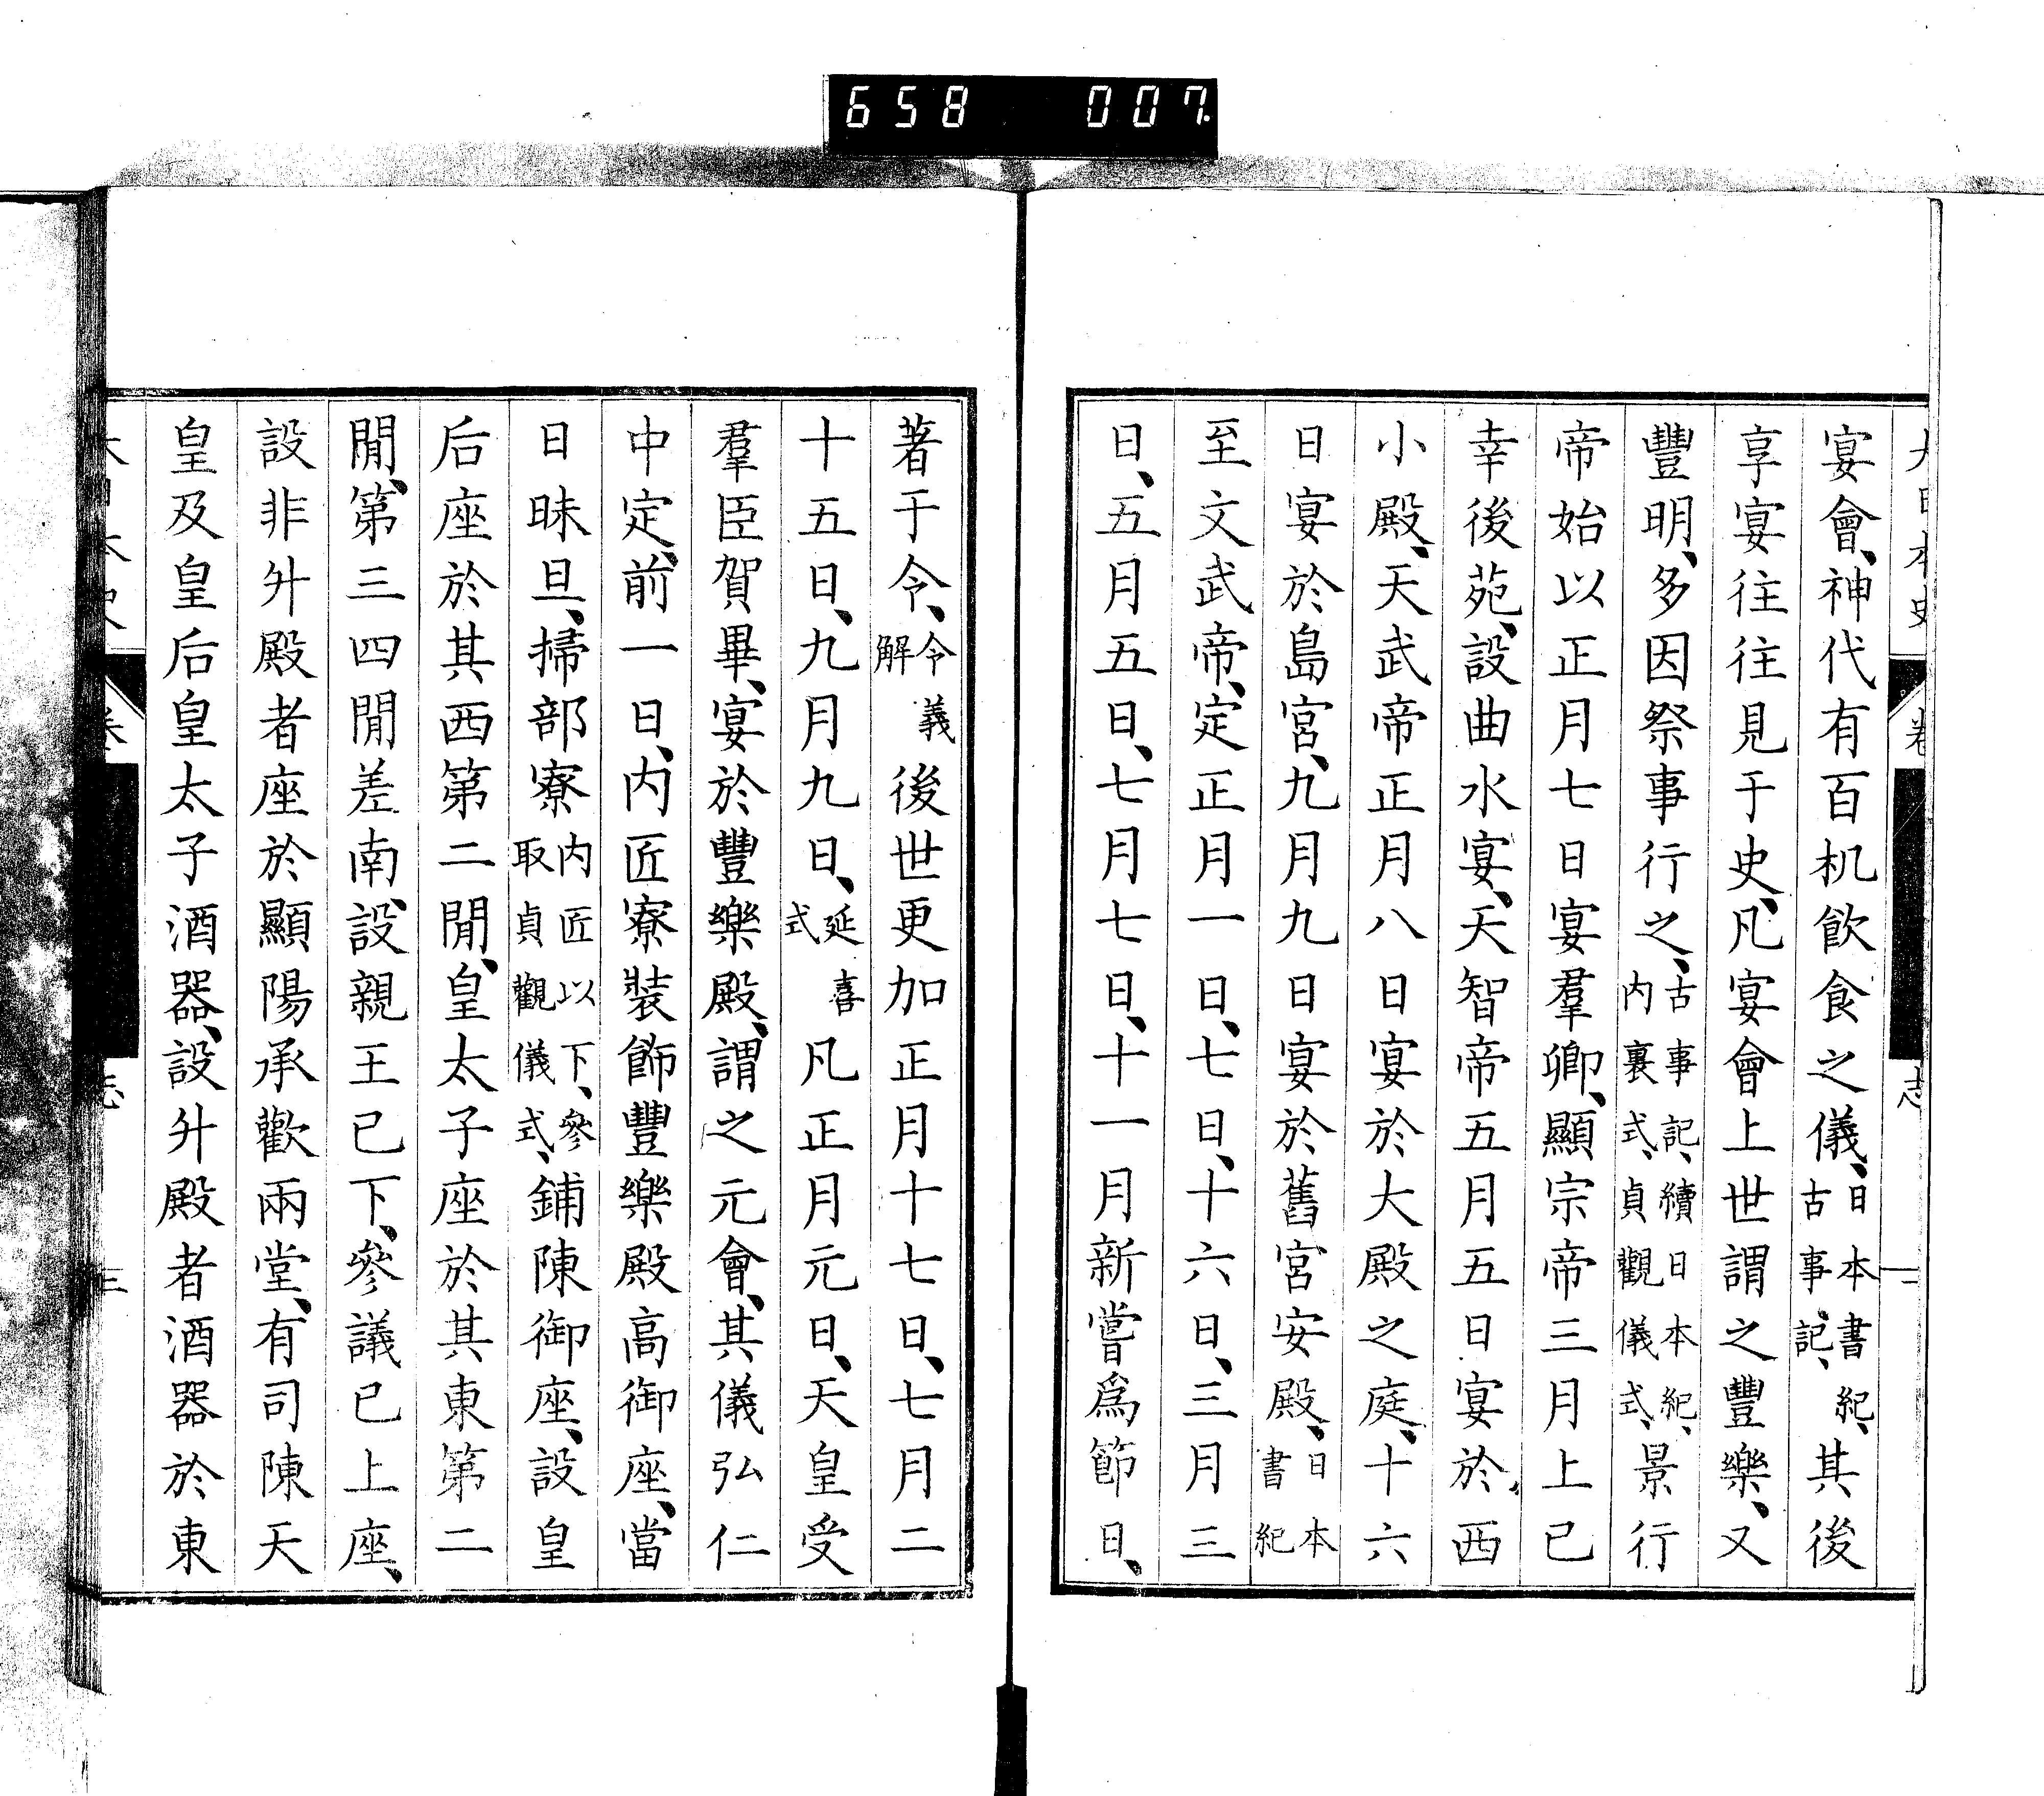 658 007.
大日本史 卷 志 二
宴會、神代有百机飲食之儀、日本書紀、古事記、其後
享宴往往見于史、凡宴會上世謂之豐樂、又
豐明、多因祭事行之、古事記、續日本紀、內裏式、貞觀儀式、景行
帝始以正月七日宴羣卿、顯宗帝三月上巳
幸後苑、設曲水宴、天智帝五月五日宴於西
小殿、天武帝正月八日宴於大殿之庭、十六
日宴於島宮、九月九日宴於舊宮安殿、日本書紀
至文武帝、定正月一日、七日、十六日、三月三
日、五月五日、七月七日、十一月新嘗爲節日、
著于令、令義解後世更加正月十七日、七月二
十五日、九月九日、延喜式凡正月元日、天皇受
羣臣賀畢、宴於豐樂殿、謂之元會、其儀弘仁
中定、前一日、內匠寮裝飾豐樂殿高御座、當
日昧旦、掃部寮內匠以下、參取貞觀儀式、鋪陳御座、設皇
后座於其西第二閒、皇太子座於其東第二
閒、第三四閒差南、設親王已下、參議已上座、
設非升殿者座於顯陽承歡兩堂、有司陳天
皇及皇后皇太子酒器、設升殿者酒器於東
大日本史 卷 志 三